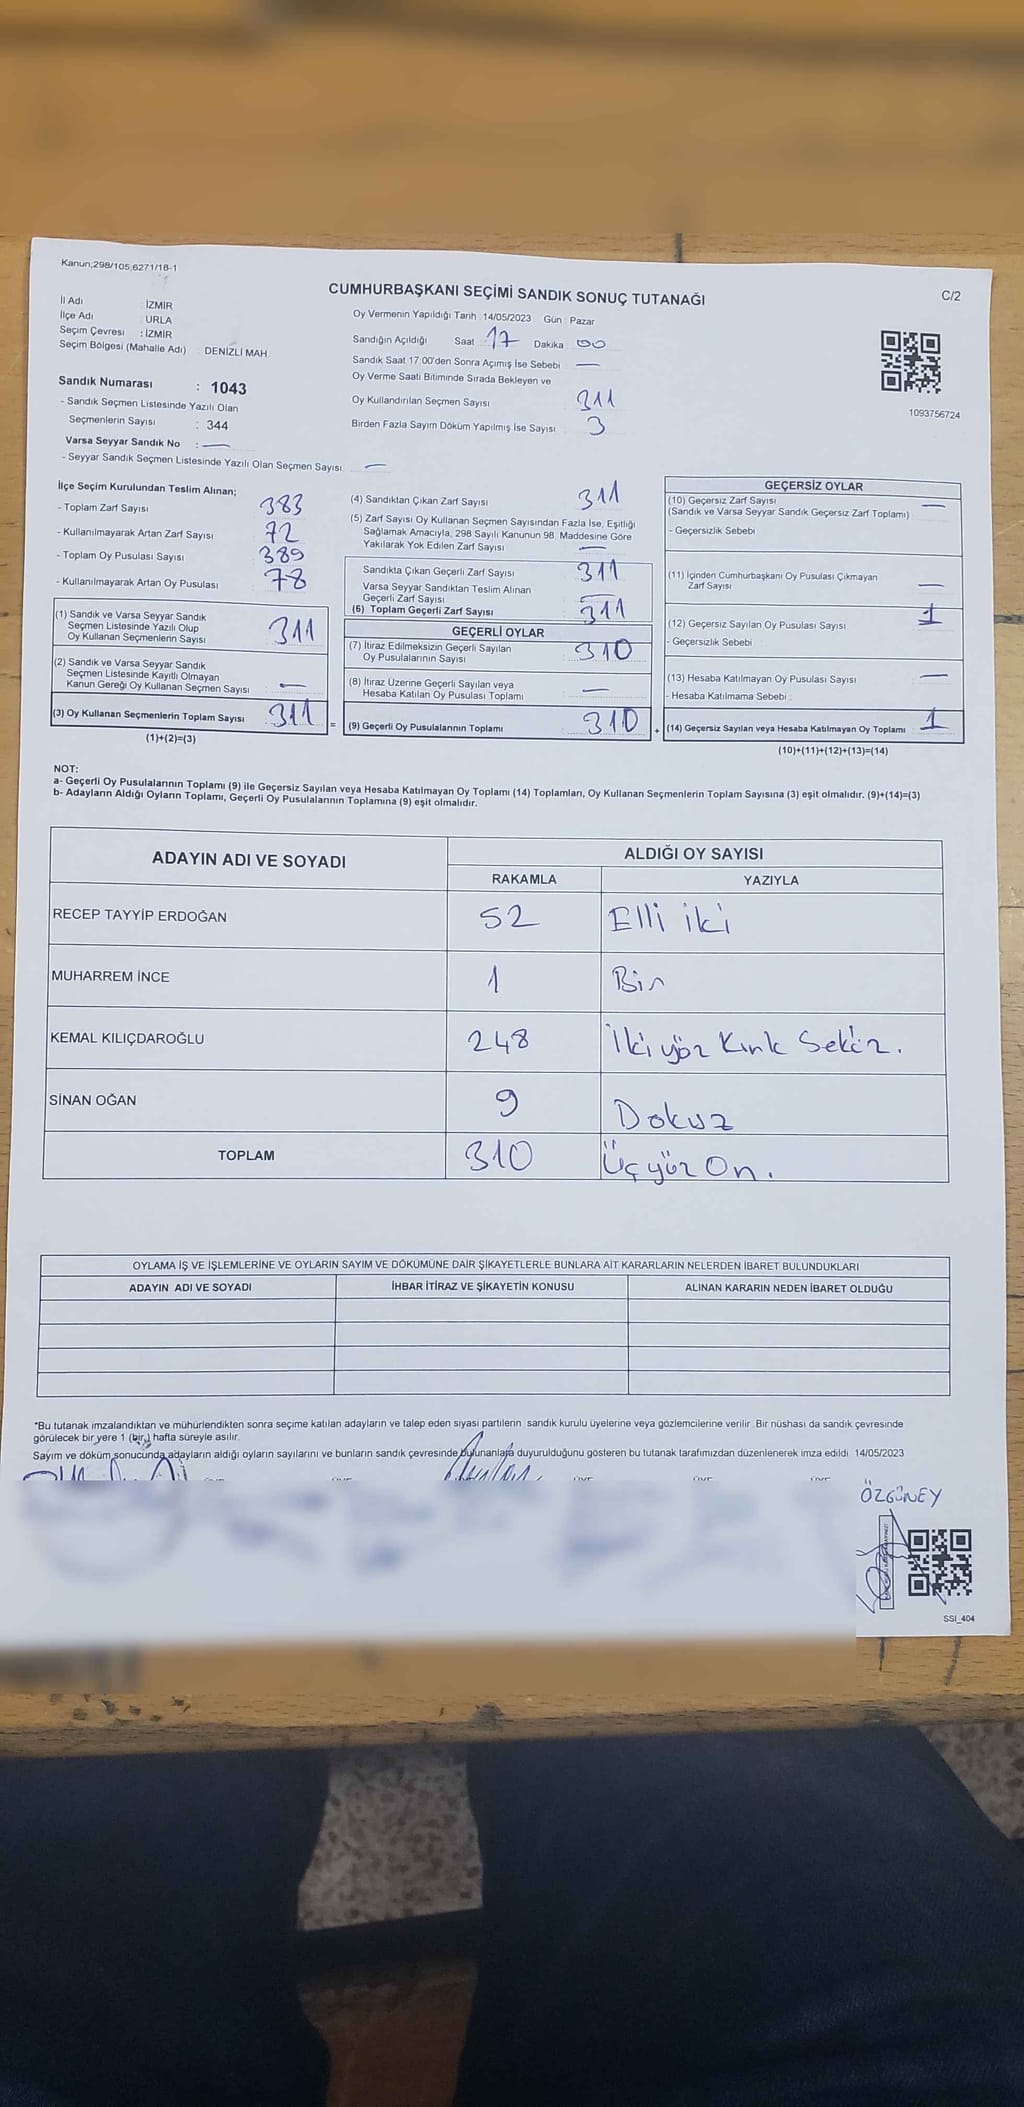 Kanun;298/105;6271/18-1
CUMHURBAŞKANI SEÇİMİ SANDIK SONUÇ TUTANAĞI
C/2
İl Adı İZMİR
İlçe Adı URLA
Seçim Çevresi : İZMİR
Seçim Bölgesi (Mahalle Adı) : DENİZLİ MAH
Sandık Numarası : 1043
- Sandık Seçmen Listesinde Yazılı Olan
Seçmenlerin Sayısı : 344
Varsa Seyyar Sandık No : —
- Seyyar Sandık Seçmen Listesinde Yazılı Olan Seçmen Sayısı —
Oy Vermenin Yapıldığı Tarih 14/05/2023 Gün Pazar
Sandığın Açıldığı Saat 17 Dakika 00
Sandık Saat 17:00'den Sonra Açımış İse Sebebi —
Oy Verme Saati Bitiminde Sırada Bekleyen ve
Oy Kullandırılan Seçmen Sayısı 311
Birden Fazla Sayım Döküm Yapılmış İse Sayısı 3
1093756724
İlçe Seçim Kurulundan Teslim Alınan;
- Toplam Zarf Sayısı 383
- Kullanılmayarak Artan Zarf Sayısı 72
- Toplam Oy Pusulası Sayısı 389
- Kullanılmayarak Artan Oy Pusulası 78
(1) Sandık ve Varsa Seyyar Sandık
Seçmen Listesinde Yazılı Olup
Oy Kullanan Seçmenlerin Sayısı 311
(2) Sandık ve Varsa Seyyar Sandık
Seçmen Listesinde Kayıtlı Olmayan
Kanun Gereği Oy Kullanan Seçmen Sayısı —
(3) Oy Kullanan Seçmenlerin Toplam Sayısı 311
(1)+(2)=(3)
=
(4) Sandıktan Çıkan Zarf Sayısı 311
(5) Zarf Sayısı Oy Kullanan Seçmen Sayısından Fazla İse, Eşitliği
Sağlamak Amacıyla, 298 Sayılı Kanunun 98. Maddesine Göre
Yakılarak Yok Edilen Zarf Sayısı —
Sandıkta Çıkan Geçerli Zarf Sayısı 311
Varsa Seyyar Sandıktan Teslim Alınan
Geçerli Zarf Sayısı —
(6) Toplam Geçerli Zarf Sayısı 311
GEÇERLİ OYLAR
(7) İtiraz Edilmeksizin Geçerli Sayılan
Oy Pusulalarının Sayısı 310
(8) İtiraz Üzerine Geçerli Sayılan veya
Hesaba Katılan Oy Pusulası Toplamı —
(9) Geçerli Oy Pusulalarının Toplamı 310
+
GEÇERSİZ OYLAR
(10) Geçersiz Zarf Sayısı —
(Sandık ve Varsa Seyyar Sandık Geçersiz Zarf Toplamı)
- Geçersizlik Sebebi
(11) İçinden Cumhurbaşkanı Oy Pusulası Çıkmayan
Zarf Sayısı —
(12) Geçersiz Sayılan Oy Pusulası Sayısı 1
- Geçersizlik Sebebi
(13) Hesaba Katılmayan Oy Pusulası Sayısı —
- Hesaba Katılmama Sebebi :
(14) Geçersiz Sayılan veya Hesaba Katılmayan Oy Toplamı 1
(10)+(11)+(12)+(13)=(14)
NOT:
a- Geçerli Oy Pusulalarının Toplamı (9) ile Geçersiz Sayılan veya Hesaba Katılmayan Oy Toplamı (14) Toplamları, Oy Kullanan Seçmenlerin Toplam Sayısına (3) eşit olmalıdır. (9)+(14)=(3)
b- Adayların Aldığı Oyların Toplamı, Geçerli Oy Pusulalarının Toplamına (9) eşit olmalıdır.
ADAYIN ADI VE SOYADI
ALDIĞI OY SAYISI
RAKAMLA YAZIYLA
RECEP TAYYİP ERDOĞAN 52 Elli iki
MUHARREM İNCE 1 Bir
KEMAL KILIÇDAROĞLU 248 İki yüz Kırk Sekiz.
SİNAN OĞAN 9 Dokuz
TOPLAM 310 Üç yüz On.
OYLAMA İŞ VE İŞLEMLERİNE VE OYLARIN SAYIM VE DÖKÜMÜNE DAİR ŞİKAYETLERLE BUNLARA AİT KARARLARIN NELERDEN İBARET BULUNDUKLARI
ADAYIN ADI VE SOYADI İHBAR İTİRAZ VE ŞİKAYETİN KONUSU ALINAN KARARIN NEDEN İBARET OLDUĞU
*Bu tutanak imzalandıktan ve mühürlendikten sonra seçime katılan adayların ve talep eden siyası partilerin sandık kurulu üyelerine veya gözlemcilerine verilir. Bir nüshası da sandık çevresinde
görülecek bir yere 1 (bir) hafta süreyle asılır.
Sayım ve döküm sonucunda adayların aldığı oyların sayılarını ve bunların sandık çevresinde bulunanlara duyurulduğunu gösteren bu tutanak tarafımızdan düzenlenerek imza edildi 14/05/2023
ÖZGÜNEY
SSI_404